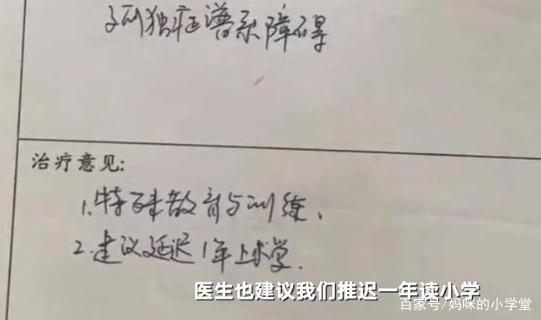 孤独症谱系障碍
治疗意见:
1.特殊教育与训练、
2.建议延迟1年上小学.
医生也建议我们推迟一年读小学
百家号/妈咪的小学堂